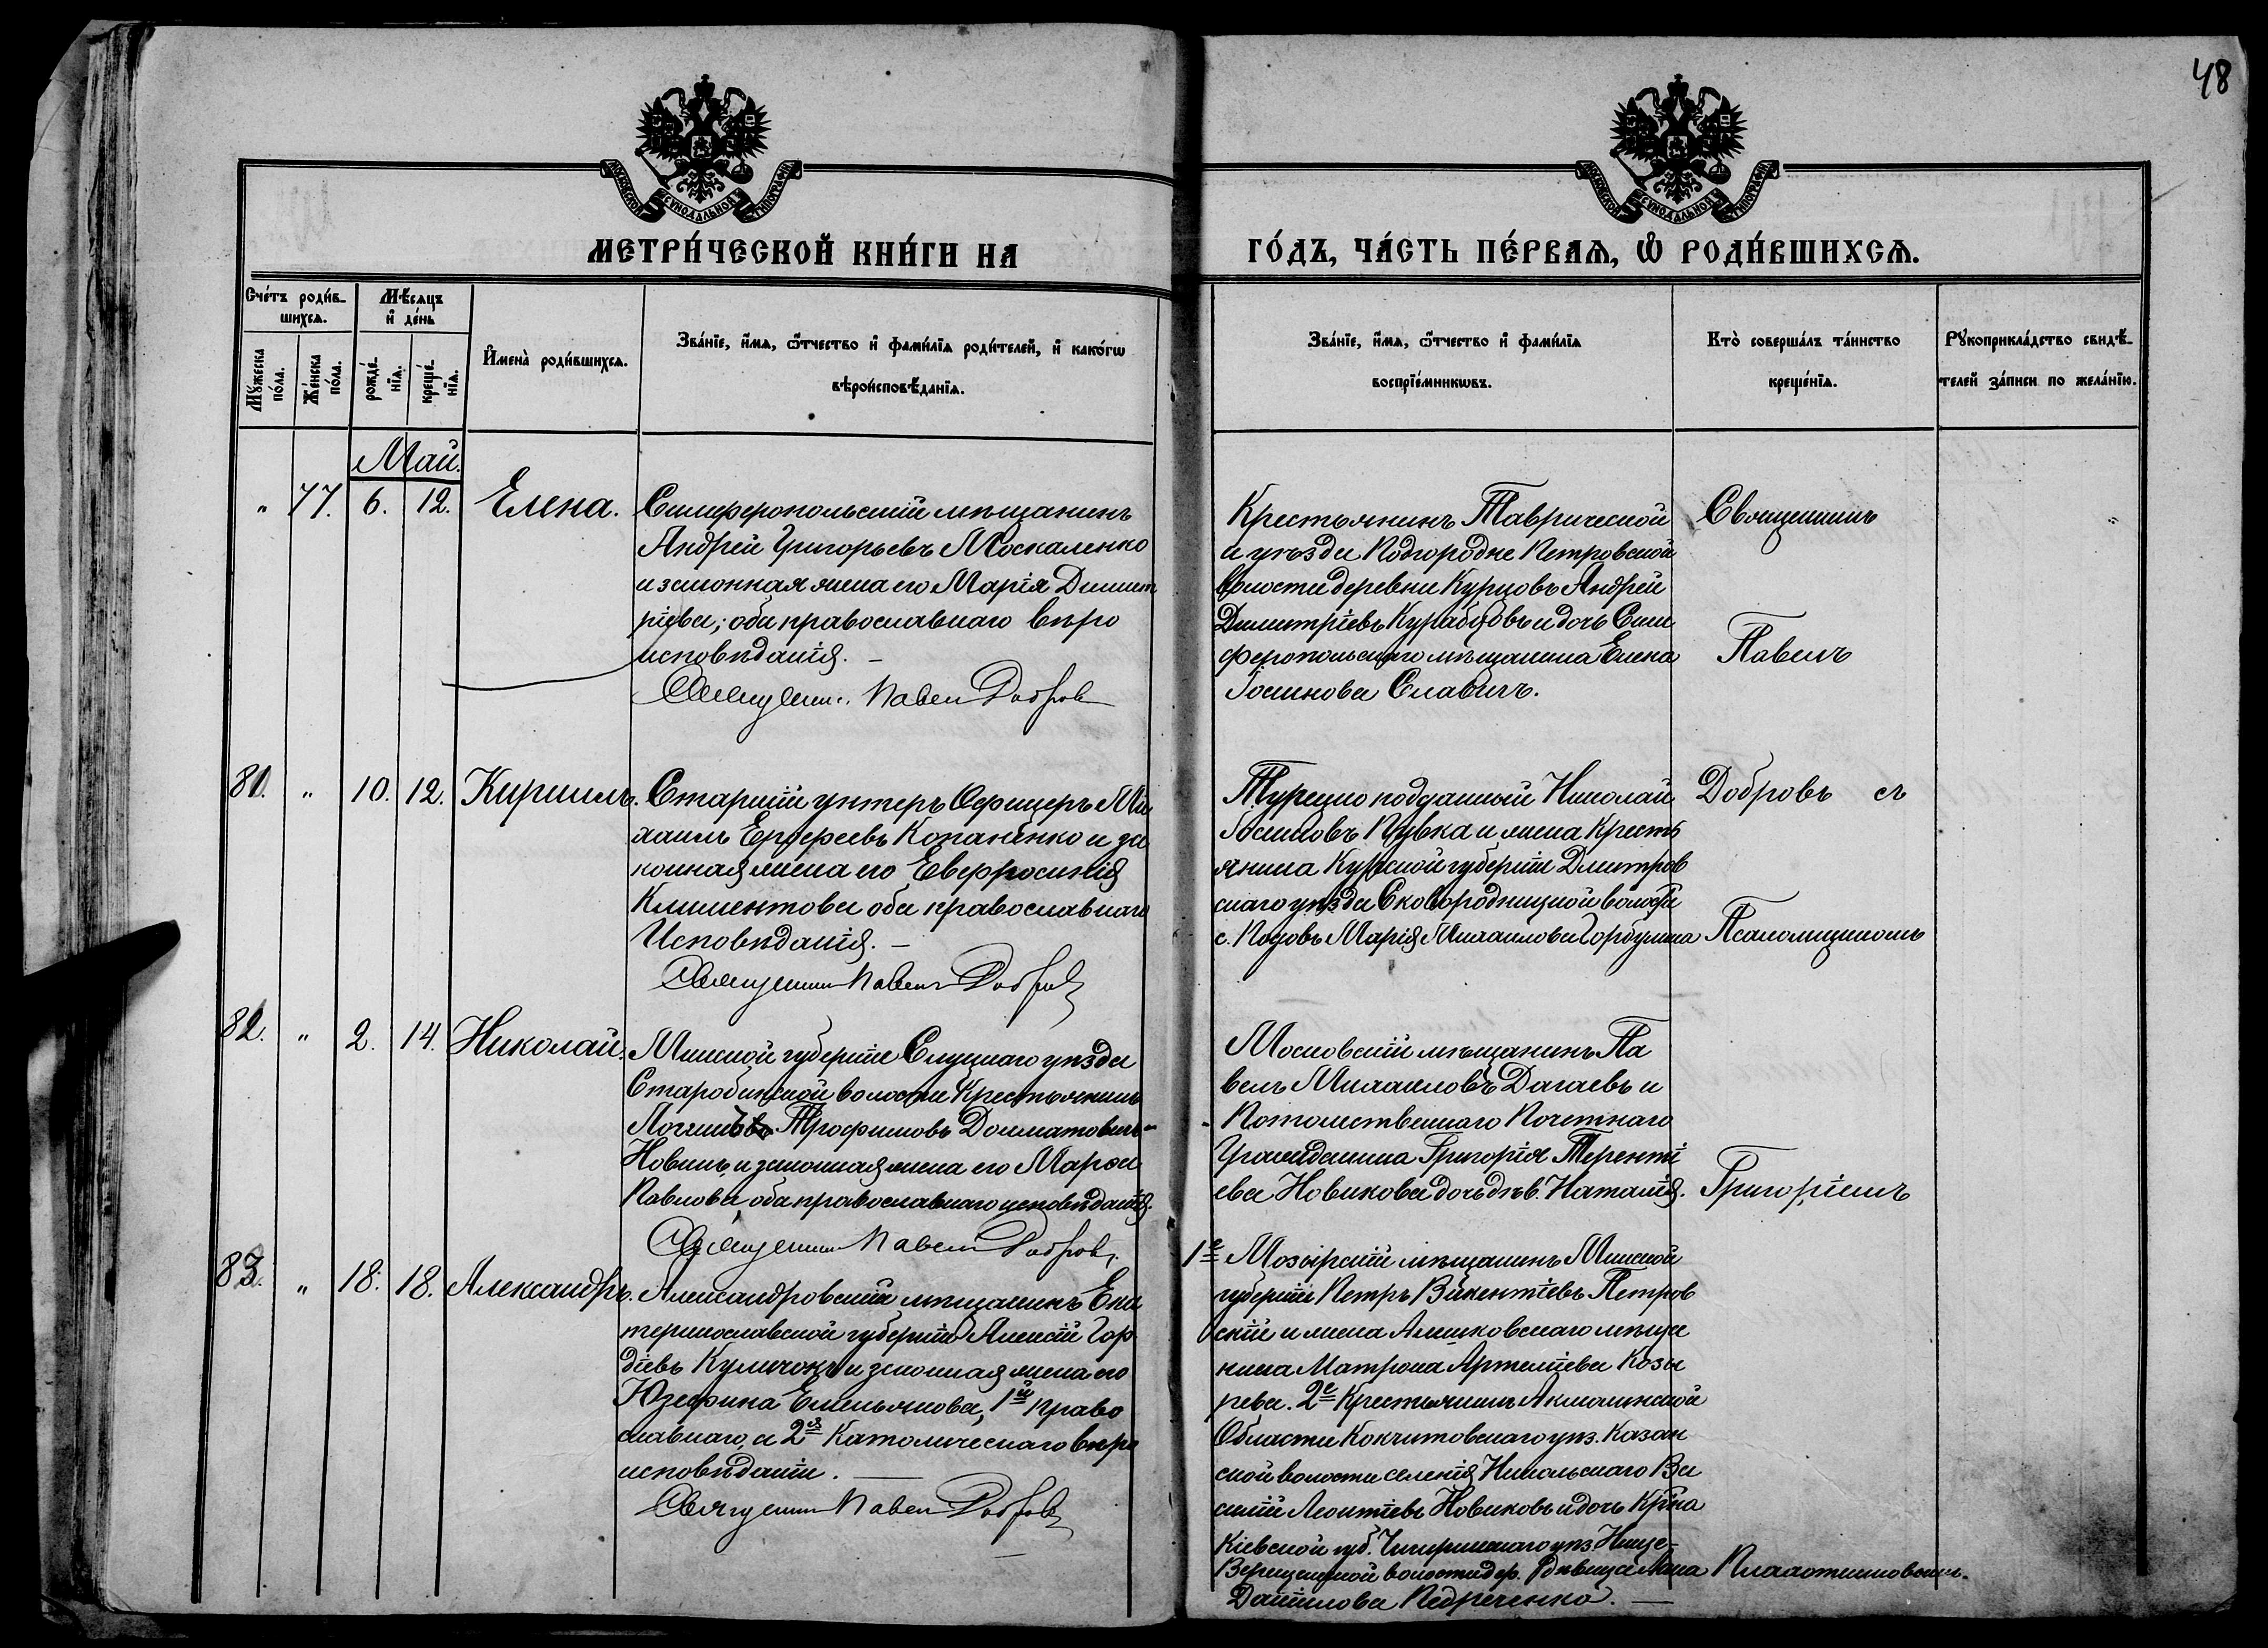 48
МОСКОВСКОЙ СѴНОДАЛЬНОЙ ТИПОГРАФІИ
МОСКОВСКОЙ СѴНОДАЛЬНОЙ ТИПОГРАФІИ
МЕТРИ́ЧЕСКОЙ КНИ́ГИ НА
ГО́ДЪ, ЧА́СТЬ ПЕ́РВАѦ, Ѡ҆ РОДИ́ВШИХСѦ.
Сче́тъ роди́в-
шихсѧ.
Мѣ́сяцъ
и҆ де́нь
Мꙋ́жеска
по́ла.
Же́нска
по́ла.
рожде́-
нїѧ.
креще́-
нїѧ.
И҆мена̀ роди́вшихсѧ.
Зва́нїе, и҆́мѧ, ѻ҆́тчество и҆ фами́лїѧ роди́телей, и҆ како́гѡ
вѣроисповѣ́данїѧ.
Зва́нїе, и҆́мѧ, ѻ҆́тчество и҆ фами́лїѧ
воспрїе́мникѡвъ.
Кто̀ соверша́лъ та́инство
креще́нїѧ.
Рꙋкоприкла́дство свидѣ́-
телей за́писи по жела́нїю.
Май.
" 77. 6. 12. Елена.
Симферопольскій мѣщанинъ
Андрей Григорьевъ Москаленко
и законная жена его Марія Димит
ріева; оба православнаго вѣро
исповѣданія. —
Священ. Павел Добров
Крестьянинъ Таврической
и уѣзда Подгородне Петровской
волости деревни Курцовъ Андрей
Димитріевъ Курабцовъ и дочь Сим
феропольскаго мѣщанина Елена
Іосифова Славичъ.
Священникъ
Павелъ
81. " 10. 12. Кириллъ.
Старшій унтеръ Офицеръ Ми
хаилъ Ерофеевъ Копаненко и за
конная жена его Евфросинія
Климентова оба православнаго
Исповѣданія. —
Священник Павел Добров
Турецко подданный Николай
Пувка и жена Кресть
янина Курской губерніи Дмитров
скаго уѣзда Сковородницкой волости
Марія Михаилова Горбунина
Добровъ съ
Псаломщикомъ
82. " 2. 14. Николай.
Минской губерніи Слуцкаго уѣзда
Старобинской волости Крестьянинъ
Трофимовъ Долматовичъ-
Новикъ и законная жена его Марѳа
Павлова, оба православнаго исповѣданія.
Священник Павел Добров
Московскій мѣщанинъ Па
велъ Михаиловъ Дагаевъ и
Потомственнаго Почетнаго
Гражданина Григорія Теренті
ева Новикова дочь дѣв. Наталія.
Григоріемъ
83. " 18. 18. Александръ.
Александровскій мѣщанинъ Ека
теринославской губерніи Алексій Гор
діевъ Куличокъ и законная жена его
Юзефина Емельянова, 1й право
славнаго, а 2я Католическаго вѣро
исповѣданіи. —
Священник Павел Добров
1е Мозырскій мѣщанинъ Минской
губерніи Петръ Викентіевъ Петров
скій и жена Алешковскаго мѣща
нина Матрона Артеміева Козы
рева. 2е Крестьянинъ Акмолинской
Области Кокчитовскаго уѣз. Казан
ской волости селенія Никольскаго Ва
силій Леонтіевъ Новиковъ и дочь Кр-на
Кіевской губ. Чигиринскаго уѣз.
волости дер. дѣвица Анна
Даніилова Педреченко. —
Плахотниковымъ.